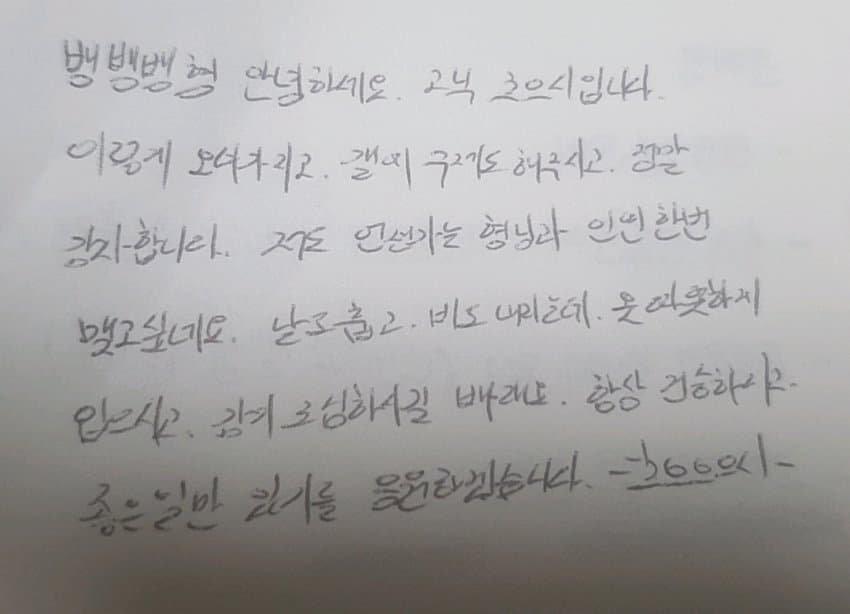 뱅뱅뱅형 안녕하세요. 고닉 호으시입니다.
이렇게 오셔가리고. 갤에 구경도 해주시고. 정말
감사합니다. 저도 언젠가는 형님과 인연 한번
맺고싶네요. 날도 춥고. 비도 내리는데. 옷 따뜻하게
입으시고. 감기 조심하시길 바래요. 항상 건승하시고.
좋은일만 있기를 응원하겠습니다.